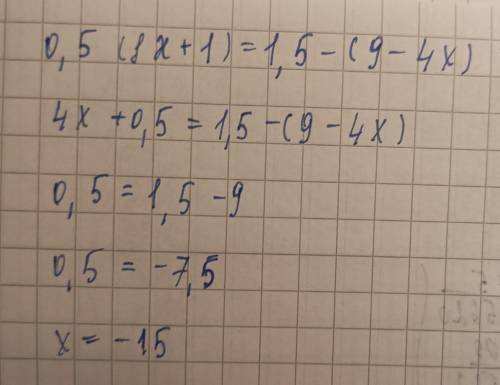 0,5 (8x+1)=1,5-(9-4x)
4x +0,5 = 1,5-(9-4x)
0,5 = 1,5 -9
0,5 = -7,5
x = -15